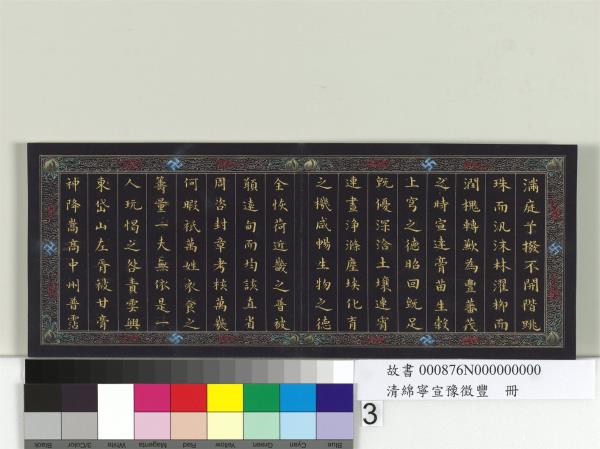 滿庭芋撥不聞階跳
珠而汎沫林濯柳而
潤槐轉歉為豐蕃茂
之時宣達膏苗生穀
上穹之德昭回既足
既優深洽土壤連宵
連晝淨滌塵埃化育
之機咸暢生物之德
全恢荷近畿之普被
顒遠甸而均談直省
周咨封章考核萬幾
何暇祇萬姓衣食之
籌量一夫無依是一
人玩愒之咎責雲興
東岱山左胥被甘膏
神降嵩高中州普霑
故書 000876N000000000
清綿寧宣豫徵豐 冊
3
Black
3/Color
White
Magenta
Red
Yellow
Green
Cyan
Blue